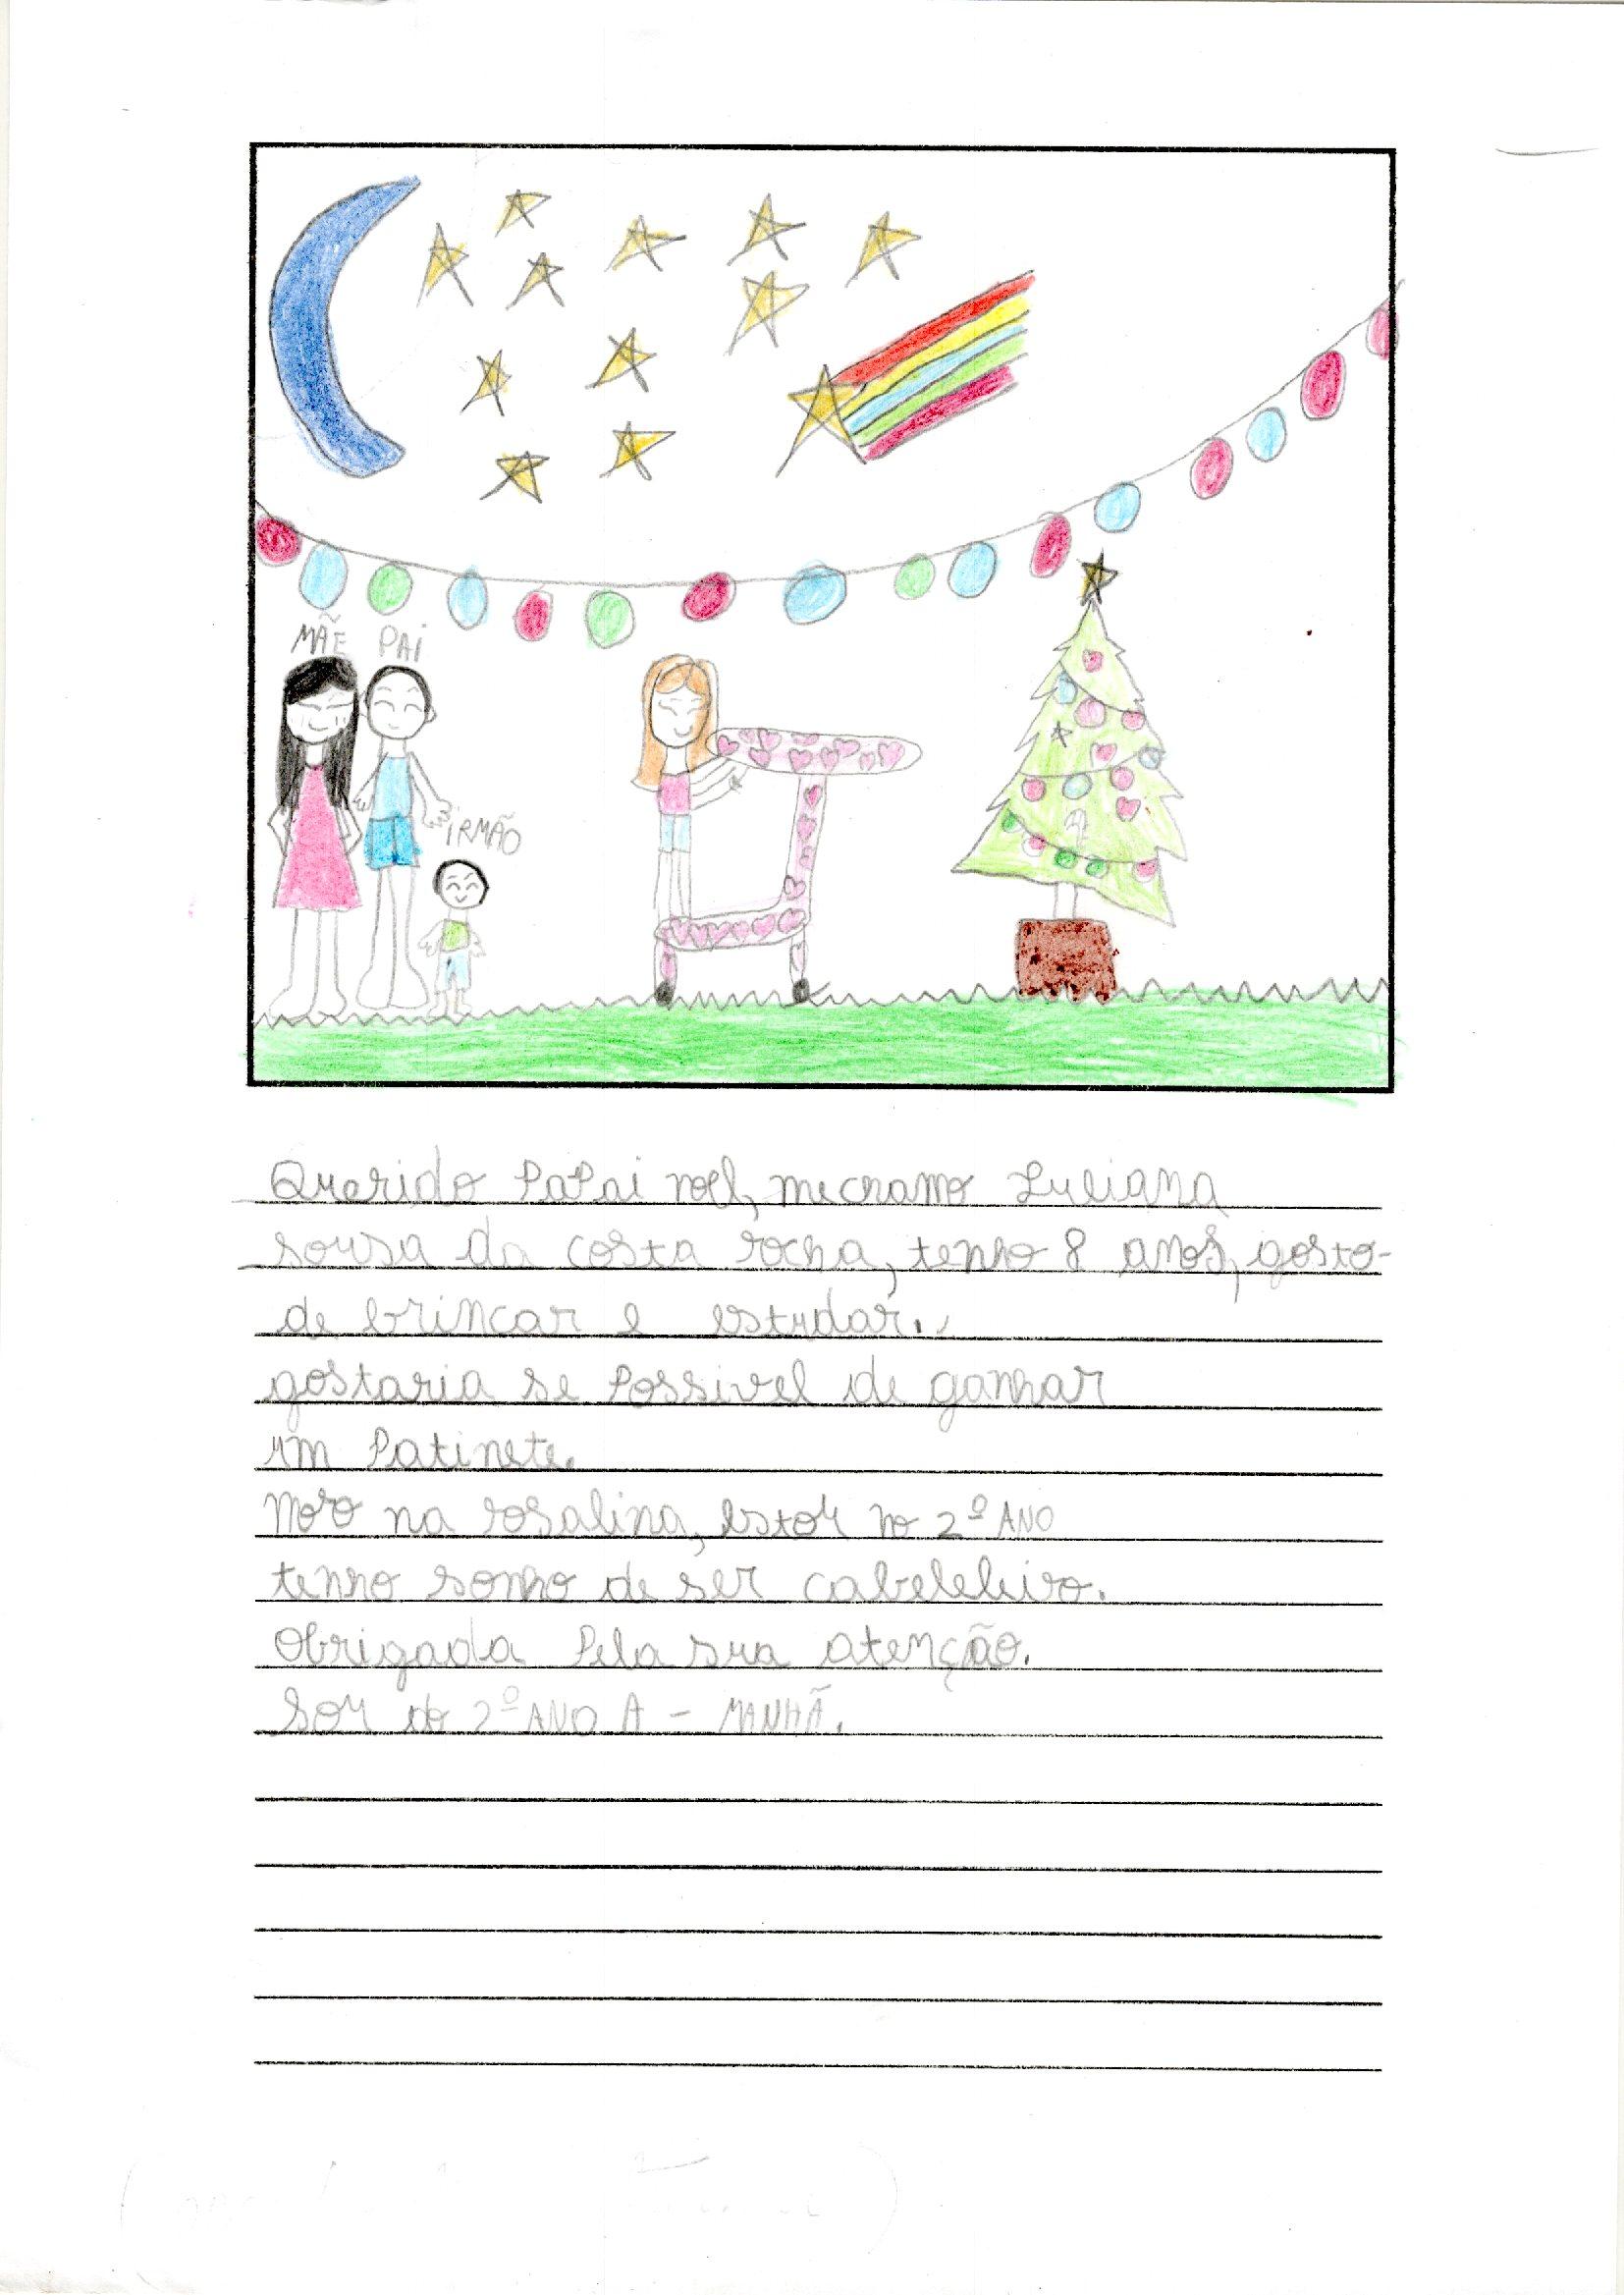 MÃE PAI
IRMÃO
Querido PaPai noel, me chamo Luciana
sousa da costa rocha, tenho 8 anos, gosto-
de brincar e estudar.
gostaria se Possivel de ganhar
um Patinete.
Moro na rosalina, estou no 2º ANO
tenho sonho de ser cabeleleiro.
Obrigada Pela sua atenção.
Sou do 2º ANO A - MANHÃ.